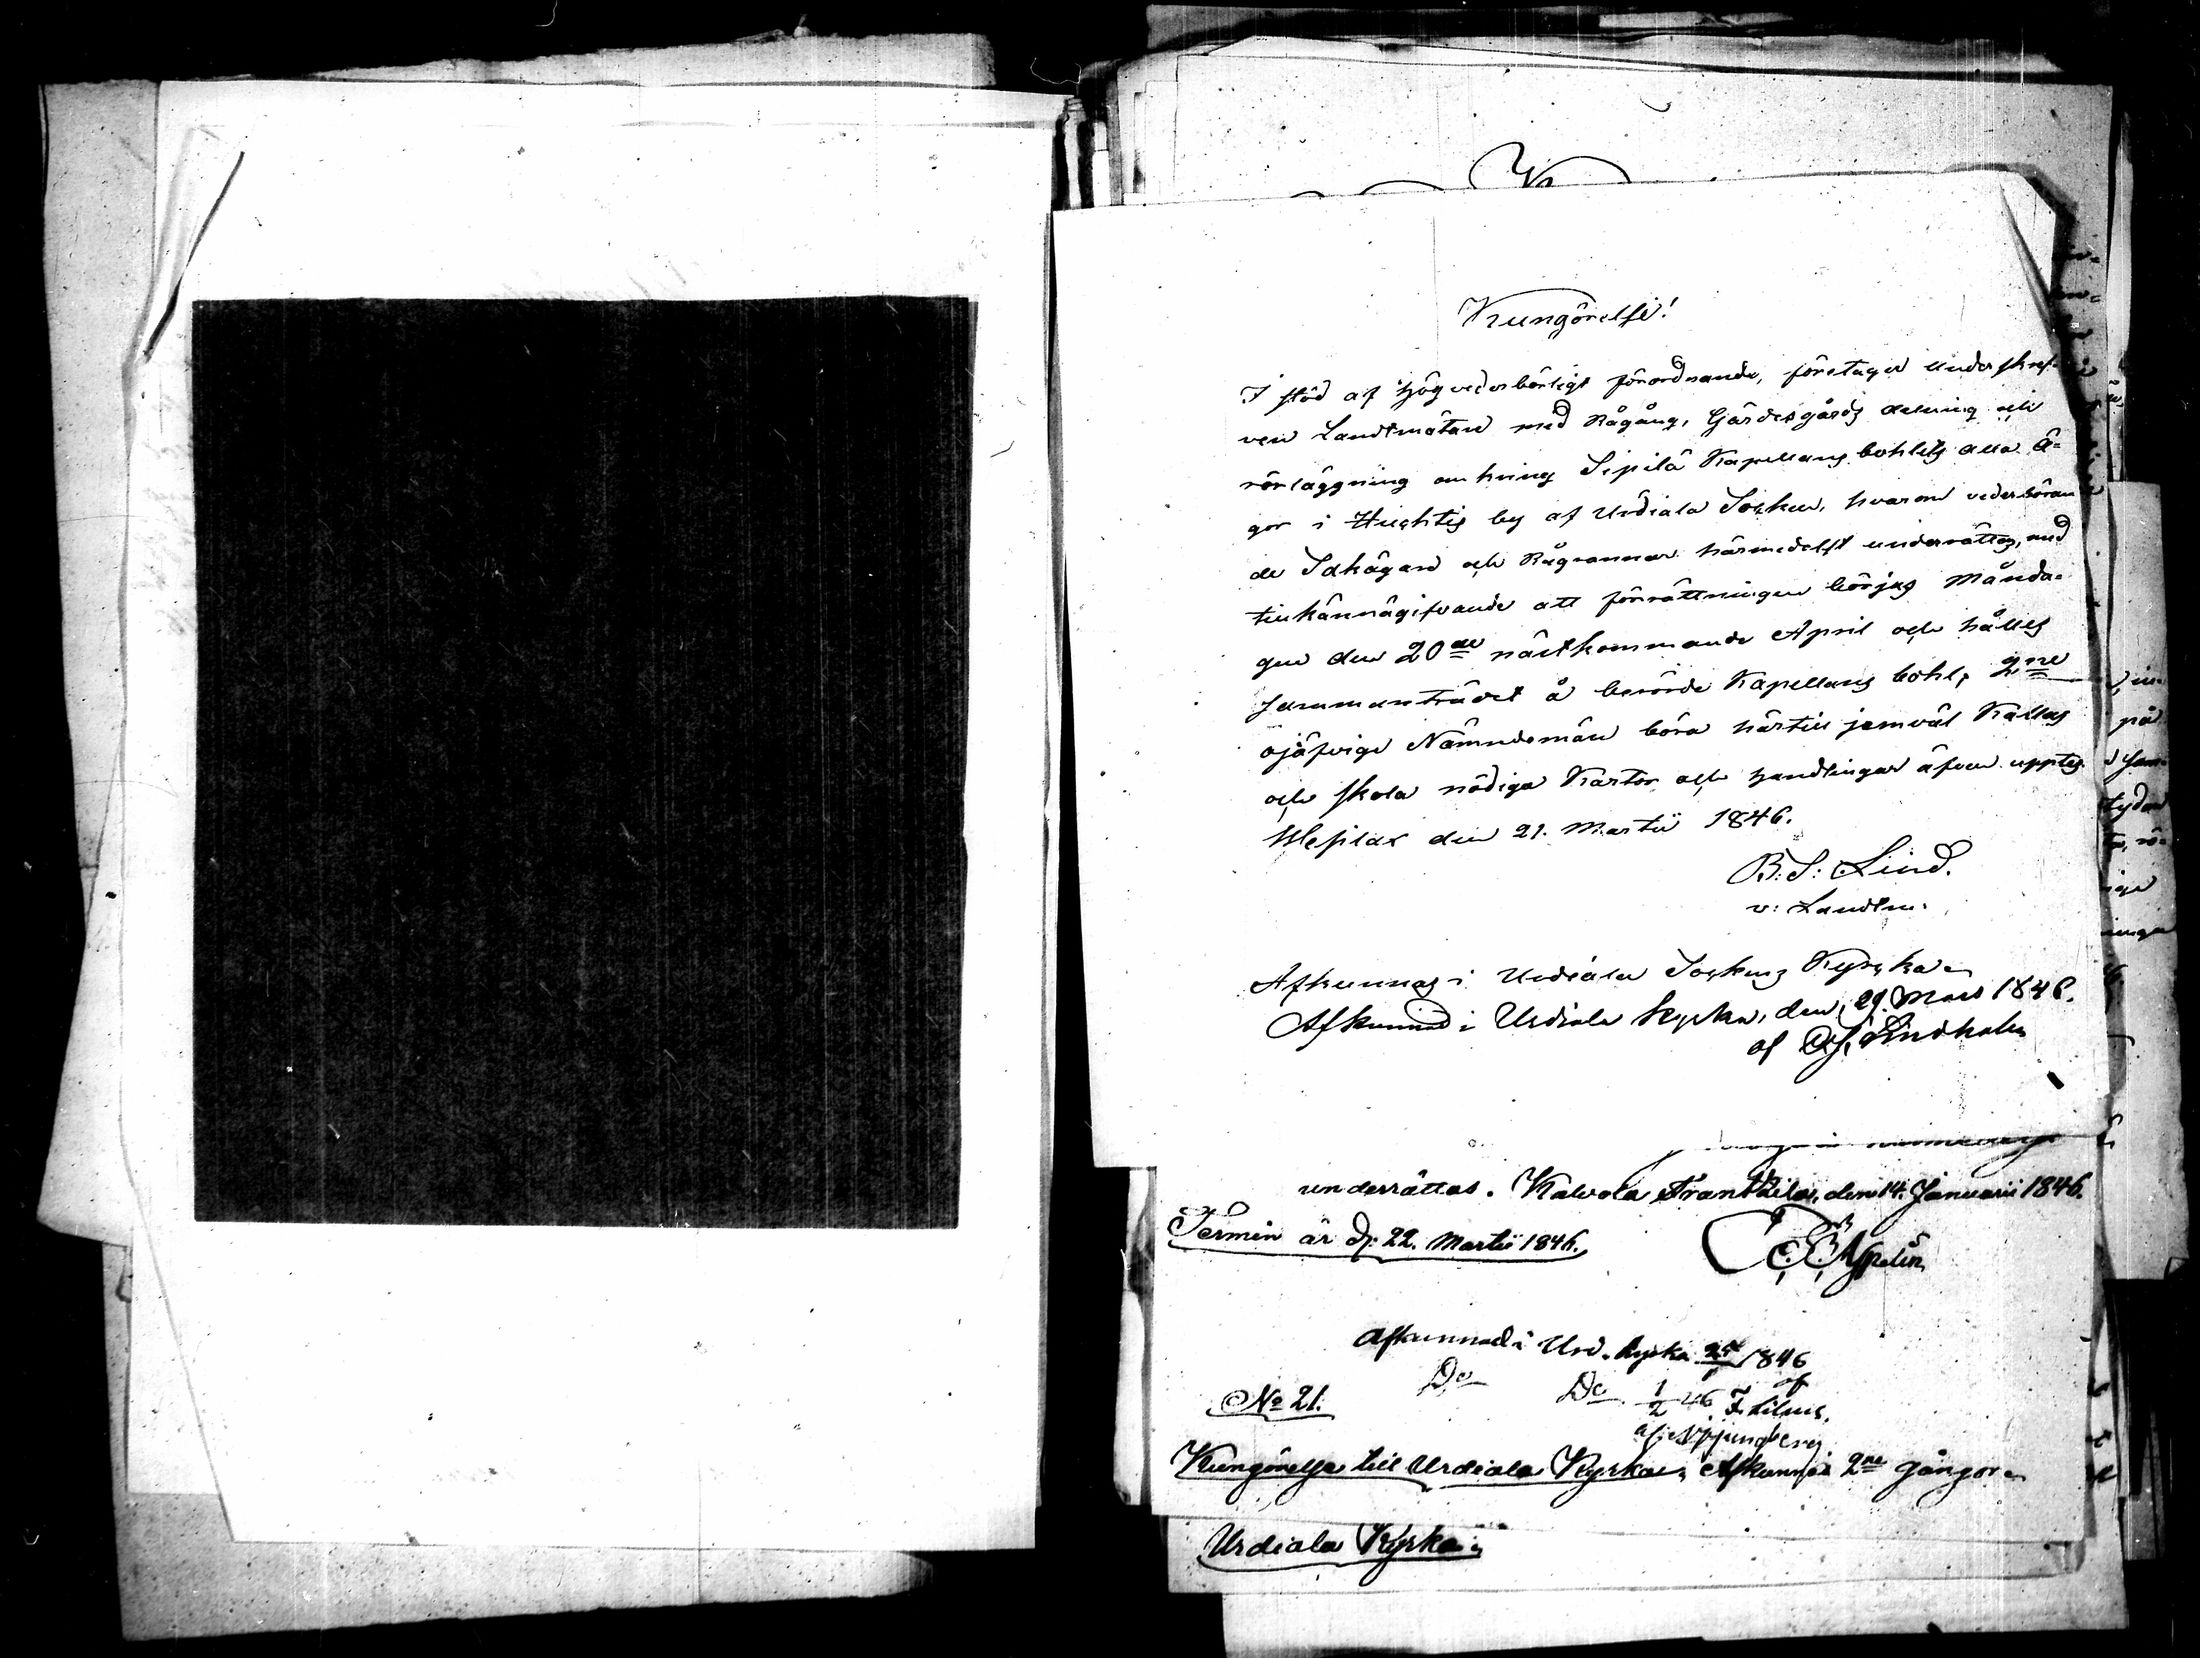 Kungörelse!
I stöd af Högvederbörligt förordnande, företager underskref-
ven Landtmätare med Rågång, Gärdesgårds delning och
rörläggning omkring Sipilä Kapellans bohlets alla ä-
gor i Huhtis by af Urdiala Socken, hvarom vederböran
de Sakägare och Rågrannar härmedelst underrättas, med
tillkännagifvande att förrättningen börjas Månda-
gen den 20de nästkommande April och hålles
sammanträdet å berörde Kapellans bohl, 2ne
ojäfvige Nämndemän böra härtill jemväl Kallas
och skola nödiga Kartor och Handlingar äfven upptes.
den 21. Martii 1846.
B: S: Lind.
v: Landtm:
Afkunnas i Urdiala Sockens Kyrka
Afkunnad i Urdiala Kyrka, den 29. Mars 1846.
af Lindholm
underrättas. Kalvola Frantsila, den 14. Januarii 1846.
Termin är d. 22. Martii 1846.
Aspelin
Afkunnad i Urd. Kyrka 1846
Do Do 1/2 46 af
No 21.
Kungörelse till Urdiala Kyrka Afkunnas 2ne gångor
Urdiala Kyrka